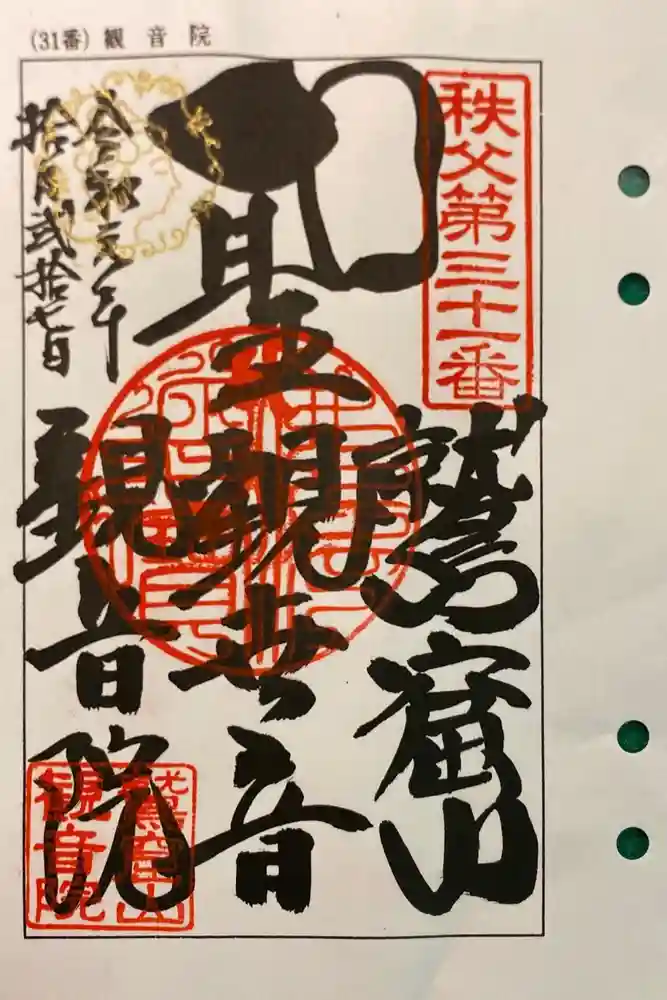 (31番) 観音院
秩父第三十一番
鷲窟山
聖観世音
観音院
令和元年
拾月弐拾七日
鷲窟山
観音院